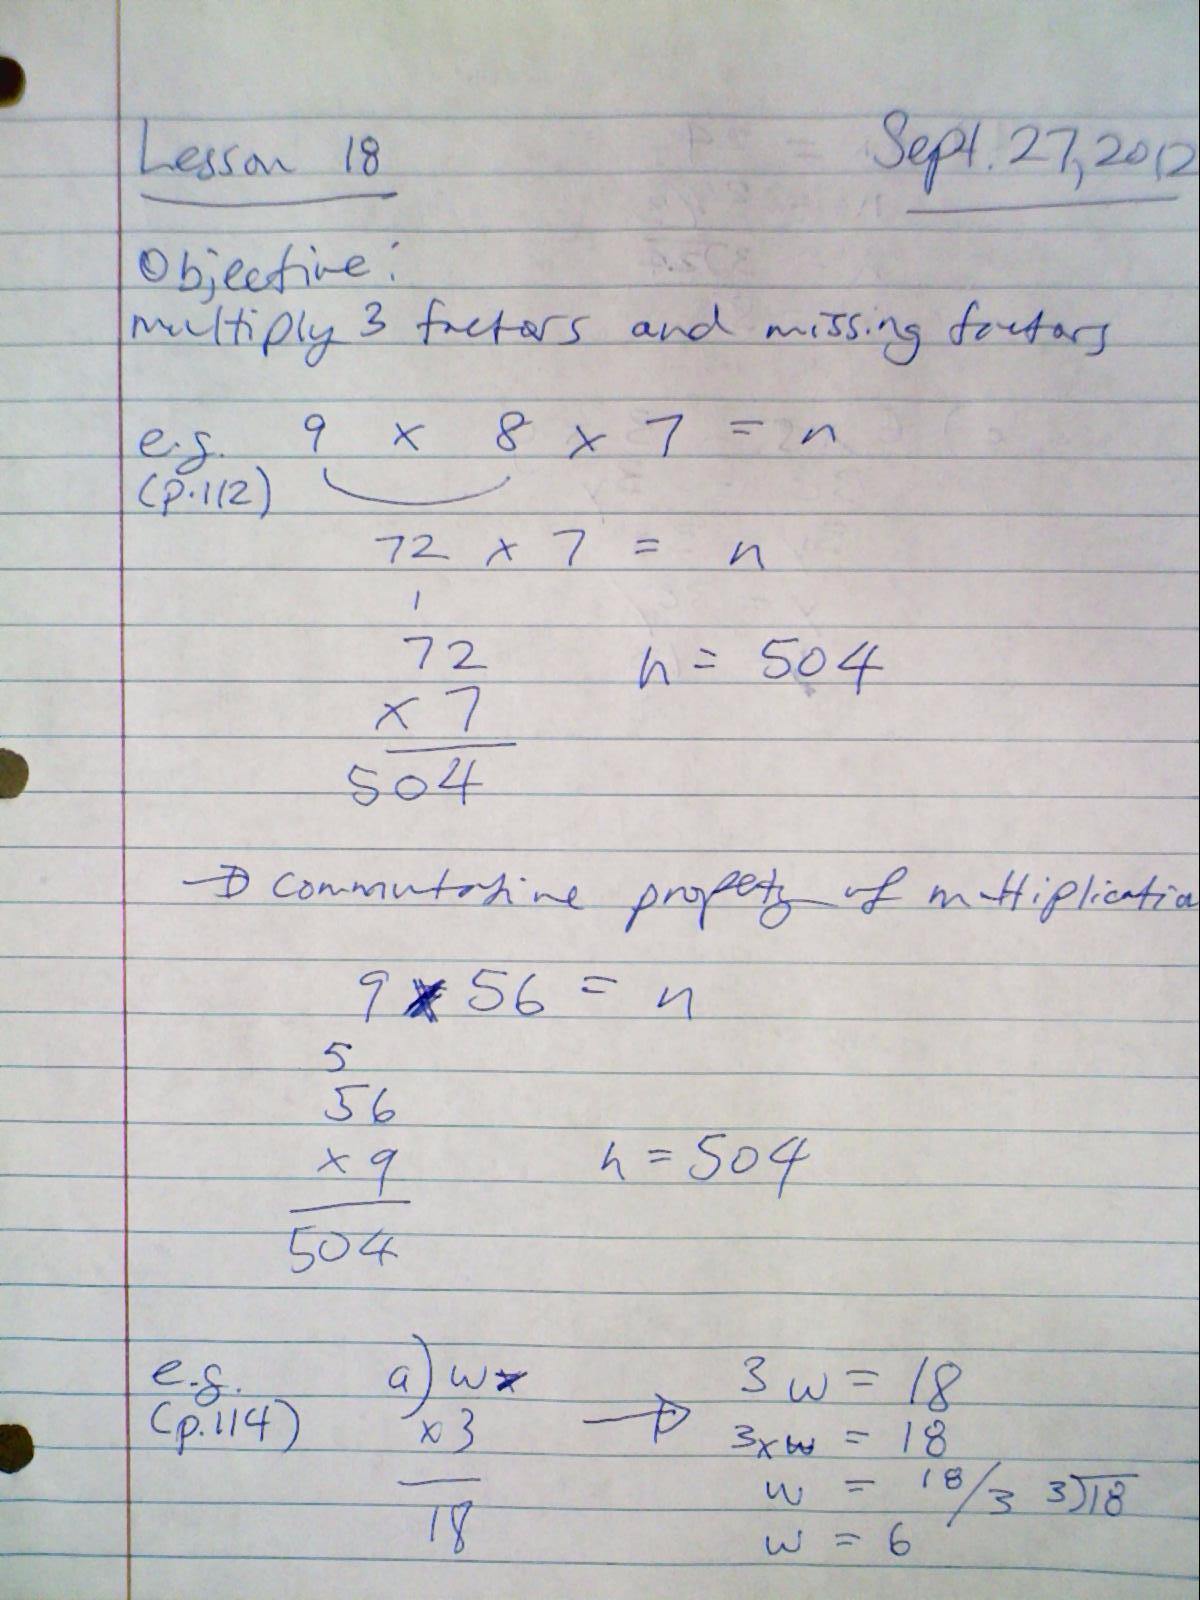 Lesson 18 Sept. 27, 2012
Objective:
multiply 3 factors and missing factors
e.g. 9 x 8 x 7 = n
(p.112)
72 x 7 = n
1
72 n = 504
x 7
504
→ commutative property of multiplicatio
9 x 56 = n
5
56
x 9 n = 504
504
e.g. a) w → 3w = 18
(p.114) x 3 3xw = 18
18 w = 18/3 3)18
w = 6